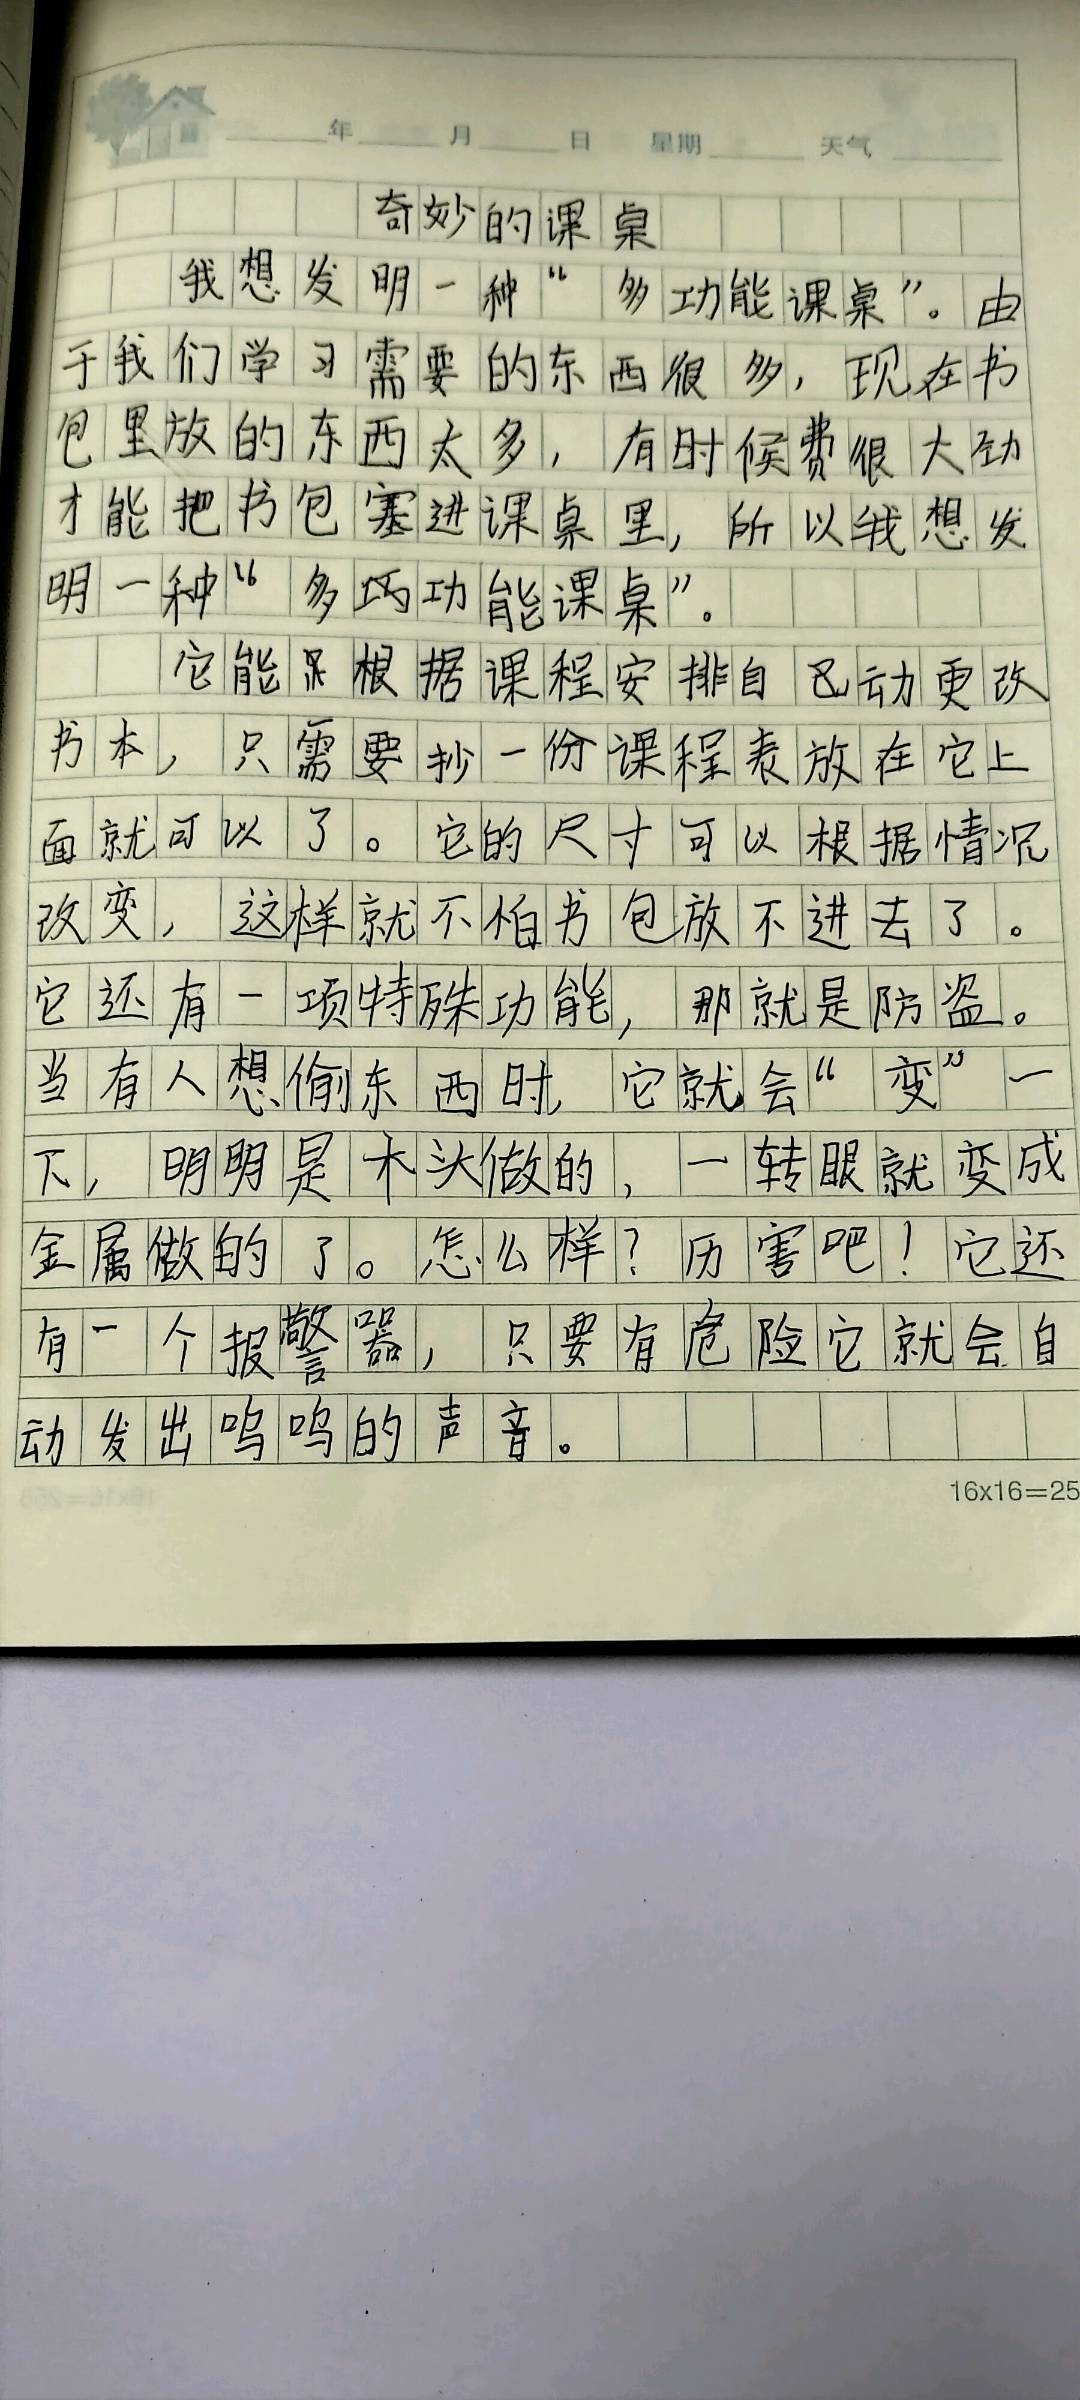 年 月 日 星期 天气
奇妙的课桌
我想发明一种“多功能课桌”。由
于我们学习需要的东西很多，现在书
包里放的东西太多，有时候费很大劲
才能把书包塞进课桌里，所以我想发
明一种“多巧功能课桌”。
它能根据课程安排自己动更改
书本，只需要抄一份课程表放在它上
面就可以了。它的尺寸可以根据情况
改变，这样就不怕书包放不进去了。
它还有一项特殊功能，那就是防盗。
当有人想偷东西时，它就会“变”一
下，明明是木头做的，一转眼就变成
金属做的了。怎么样？历害吧！它还
有一个报警器，只要有危险它就会自
动发出呜呜的声音。
16x16=25